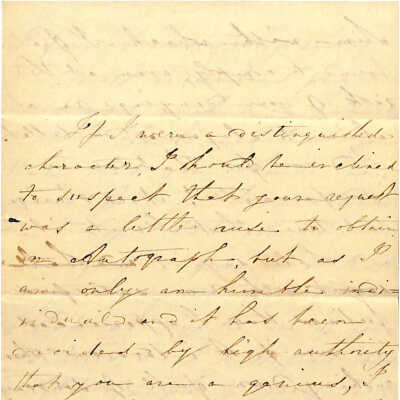 If I were a distinguished
character, I should be inclined
to suspect that your request
was a little ruse to obtain
an Autograph, but as I
am only an humble indi-
vidual and it has been
decided by high authority
that you are a genius, I